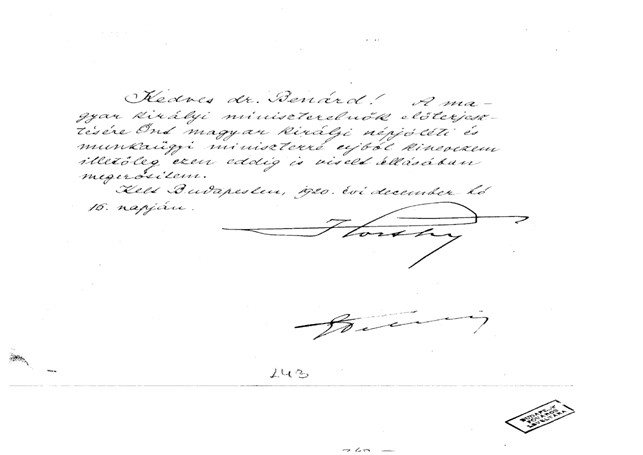 Kedves dr. Benárd! A ma-
gyar királyi miniszterelnök előterjesz-
tésére Önt magyar királyi népjóléti és
munkaügyi miniszterré ujból kinevezem
illetőleg ezen eddig is viselt állásában
megerősítem.
Kelt Budapesten, 1920. évi december hó
16. napján.
Horthy
143
BUDAPEST
FŐVÁROS
LEVÉLTÁRA